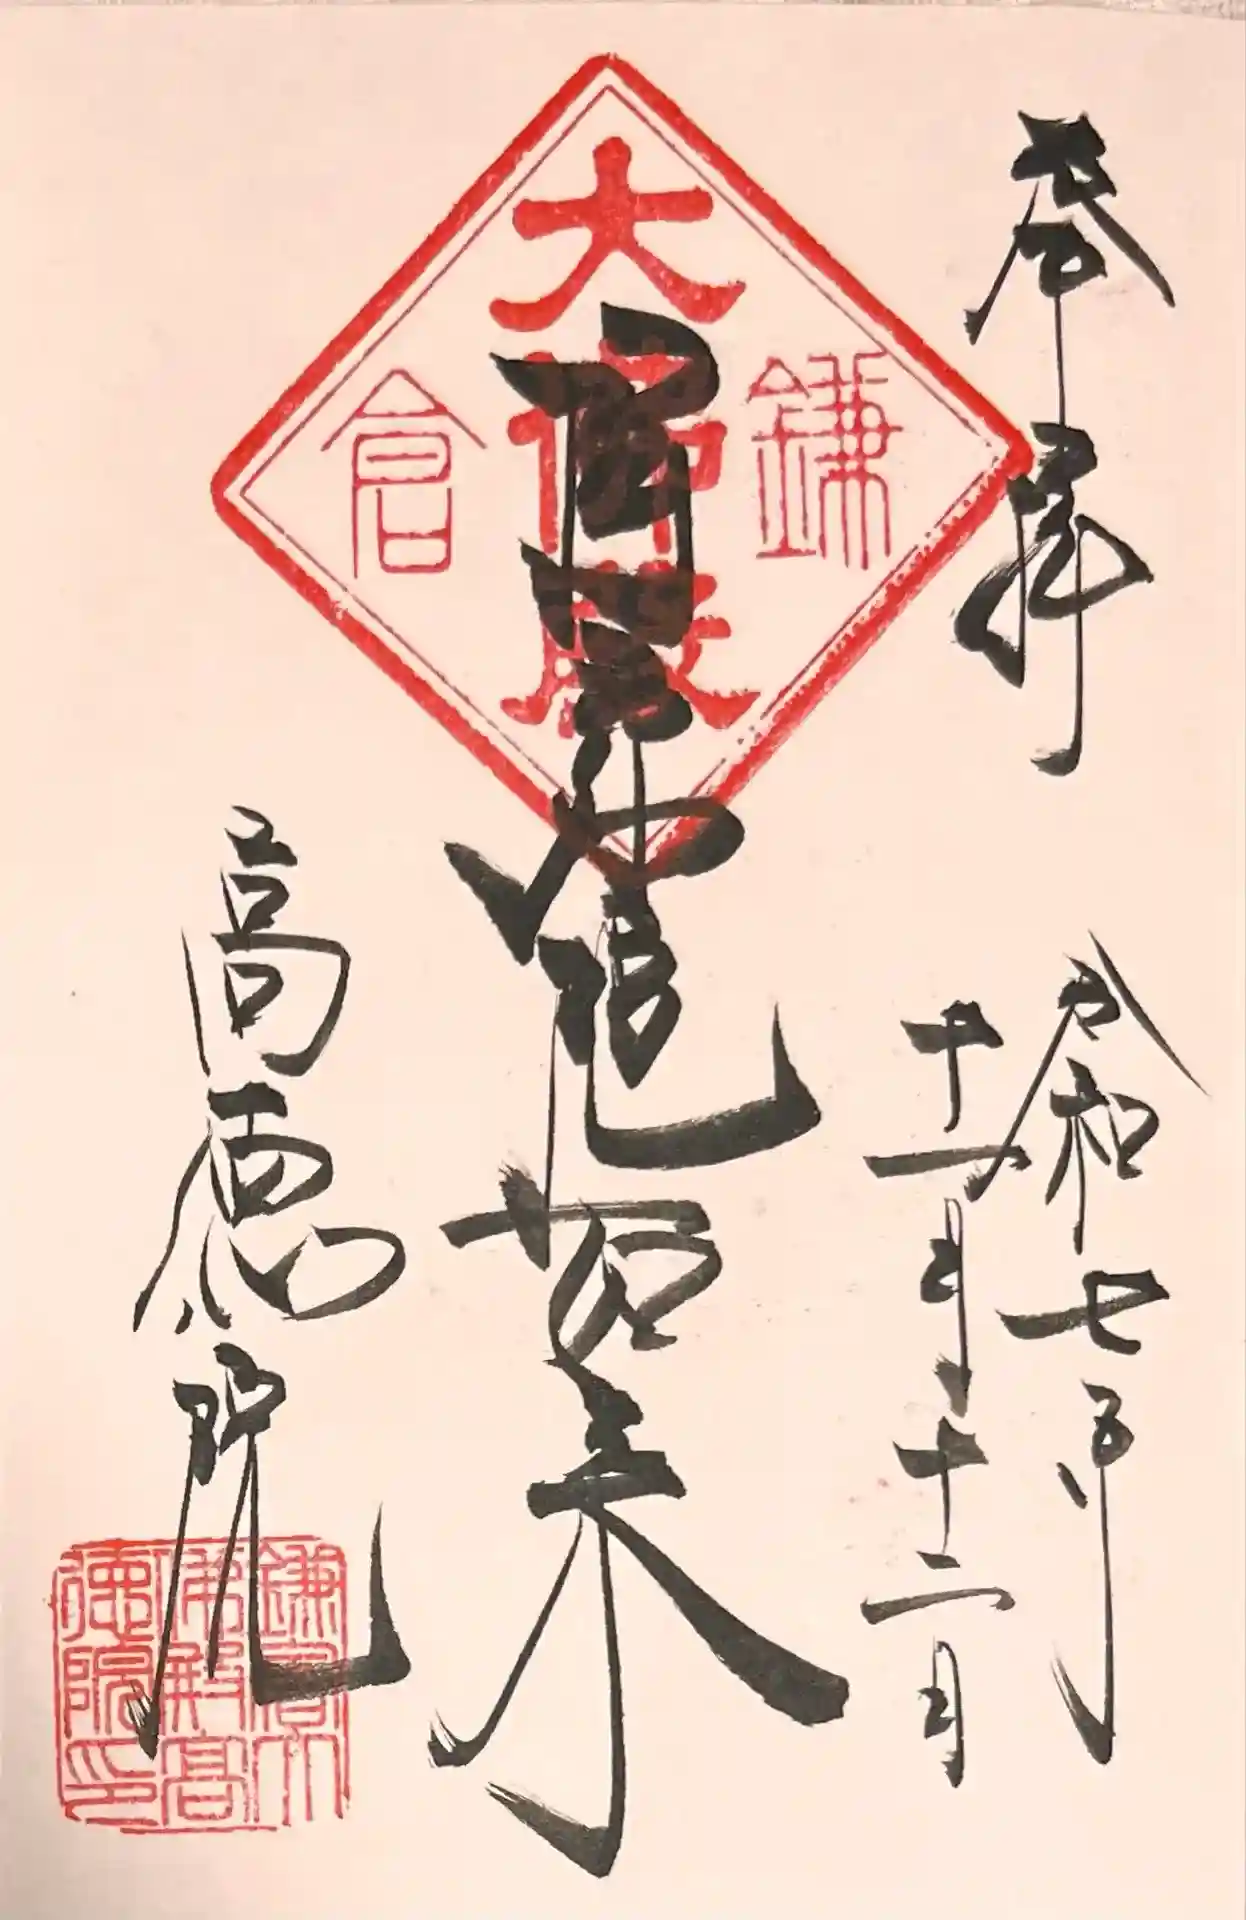 奉拝
令和七年
十一月十二日
鎌
大佛殿
倉
阿弥陀如来
高徳院
鎌倉大
佛殿高
徳院印